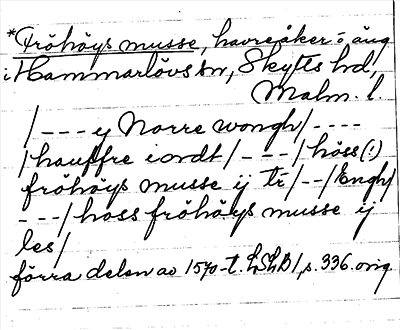 *Fröhöys musse, havreåker o. äng
i Hammarlövs sn, Skytts hd,
Malm. l.
/---ij Norre wongh/----
/hauffre iordt/---/höss(!)
fröhöys musse ij tr/--/Engh/
---/hoss fröhöys musse ij
les/
förra delen av 1570-t. LSLB1, s. 336. orig.